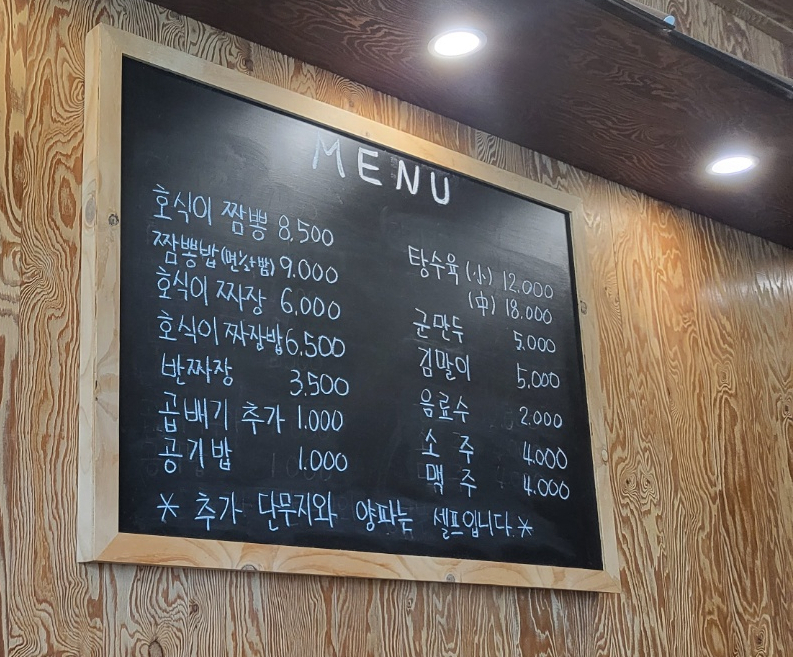 MENU
호식이 짬뽕 8,500
짬뽕밥(면/쌀밥) 9.000
호식이 짜장 6,000
호식이 짜장밥 6,500
반짜장 3.500
곱배기 추가 1.000
공기밥 1.000
탕수육 (小) 12.000
(中) 18.000
군만두 5.000
김말이 5,000
음료수 2.000
소 주 4.000
맥 주 4.000
* 추가 단무지와 양파는 셀프입니다 *